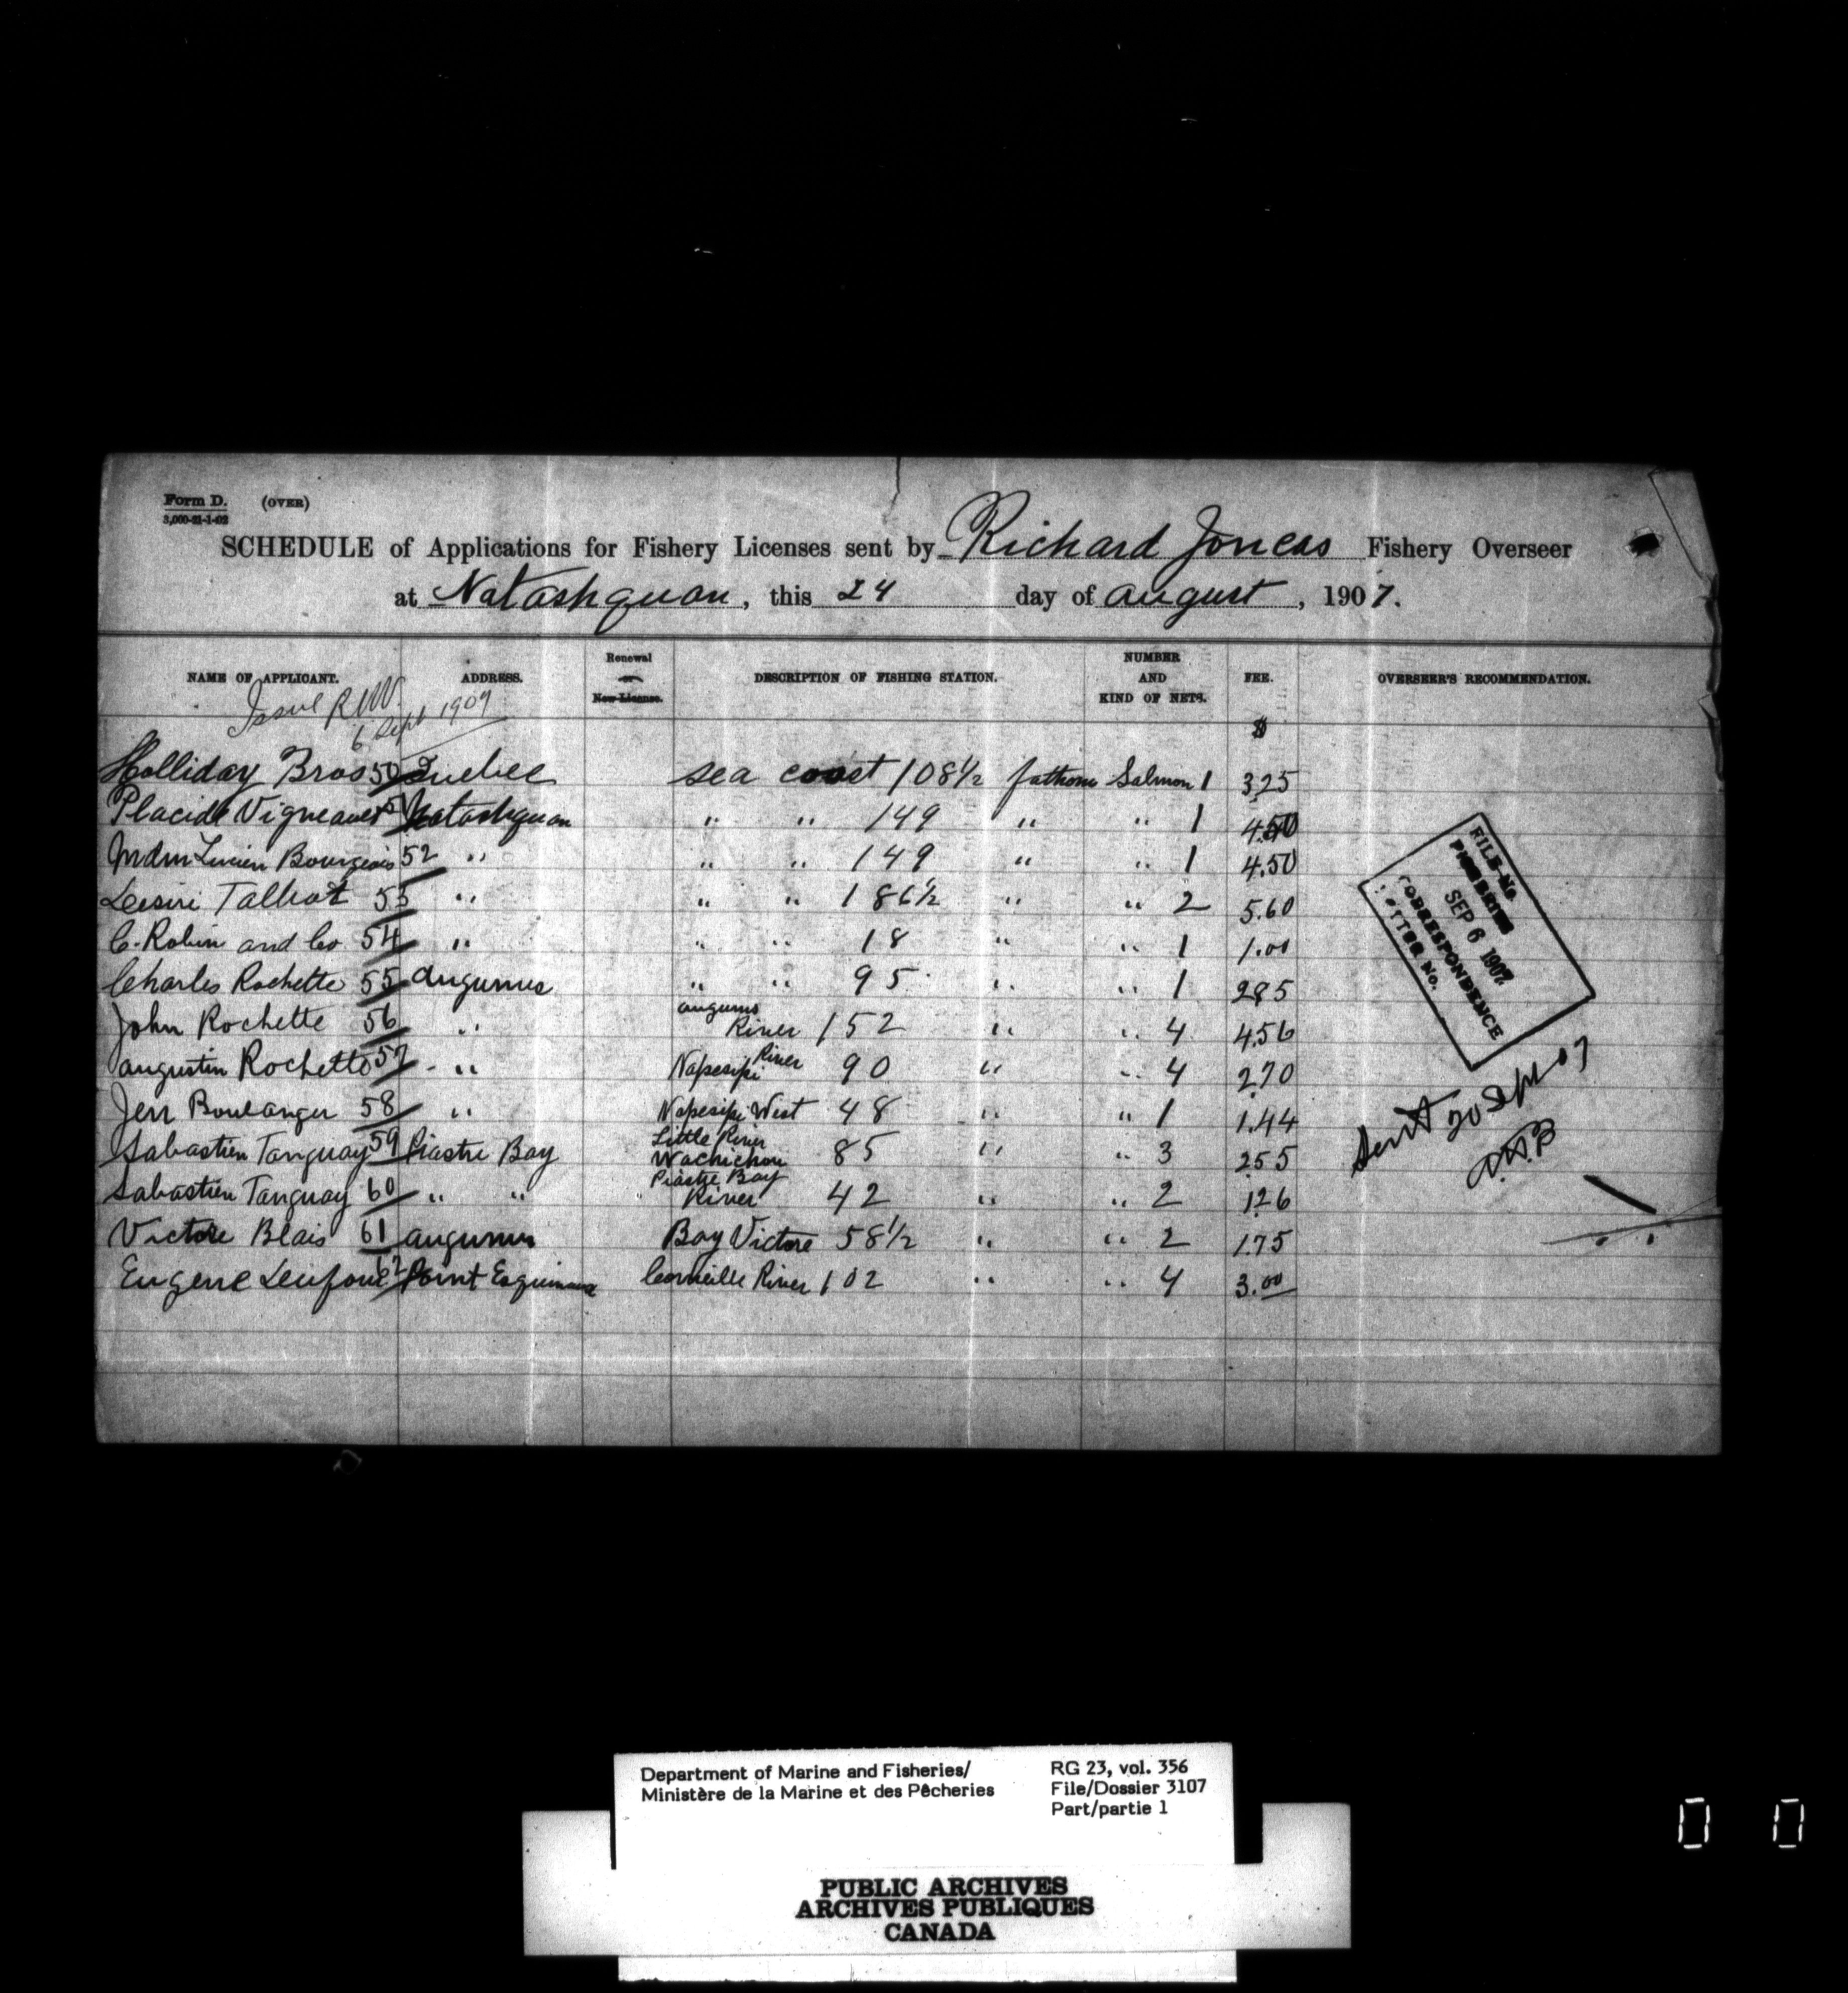 Form D. (OVER)
3,000-21-1-02
SCHEDULE of Applications for Fishery Licenses sent by Richard Joncas Fishery Overseer
at Natashquan, this 24 day of august, 1907.
NAME OF APPLICANT. ADDRESS. Renewal or New License. DESCRIPTION OF FISHING STATION. NUMBER AND KIND OF NETS. FEE. OVERSEER'S RECOMMENDATION.
Issue R
6 Sept 1907
$
Holliday Bros 50 Quebec sea coast 108½ fathoms Salmon 1 3.25
Placide Vigneault 51 Natashquan " " 149 " " 1 4.50
Mdm Lucien Bourgeois 52 " " " 149 " " 1 4.50
Desiri Talbot 53 " " " 186½ " " 2 5.60
C. Robin and Co 54 " " " 18 " " 1 1.00
Charles Rochette 55 augunus " " 95 " " 1 2.85
John Rochette 56 " augunus River 152 " " 4 4.56
augustin Rochette 57 " Napesipi River 90 " " 4 2.70
Jerr Boulanger 58 " Napesipi West 48 " " 1 1.44
Sabastien Tanguay 59 Piastre Bay Little River Wachichou 85 " " 3 2.55
Sabastien Tanguay 60 " " Piastre Bay River 42 " " 2 1.26
Victore Blais 61 augunus Bay Victore 58½ " " 2 1.75
Eugene 62 Point Esquimaux Corneille River 102 " " 4 3.00
FILE No.
FISHERIES
SEP 6 1907
CORRESPONDENCE
LETTER No.
Sent 20 Sept 07
Department of Marine and Fisheries/
Ministère de la Marine et des Pêcheries
RG 23, vol. 356
File/Dossier 3107
Part/partie 1
PUBLIC ARCHIVES
ARCHIVES PUBLIQUES
CANADA
0 0